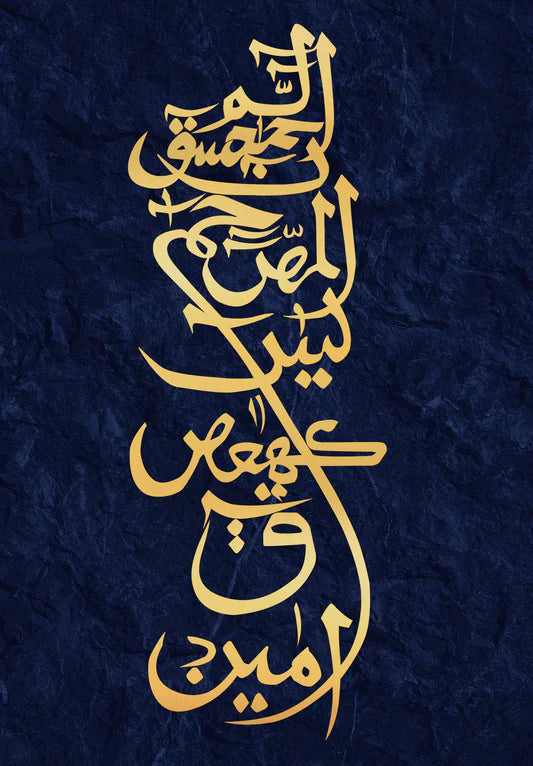 الٓمّ
حمعسق
المٓصّ حم
يس
كهيعص
ق
امين